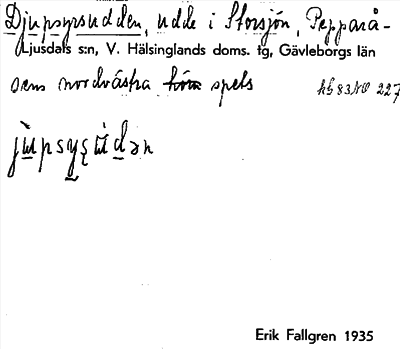 Djupsyrsudden, udde i Storsjön, Pepparå-
Ljusdals s:n, V. Hälsinglands doms. tg, Gävleborgs län
sens nordvästra spets
hö 83 NV 227
Erik Fallgren 1935